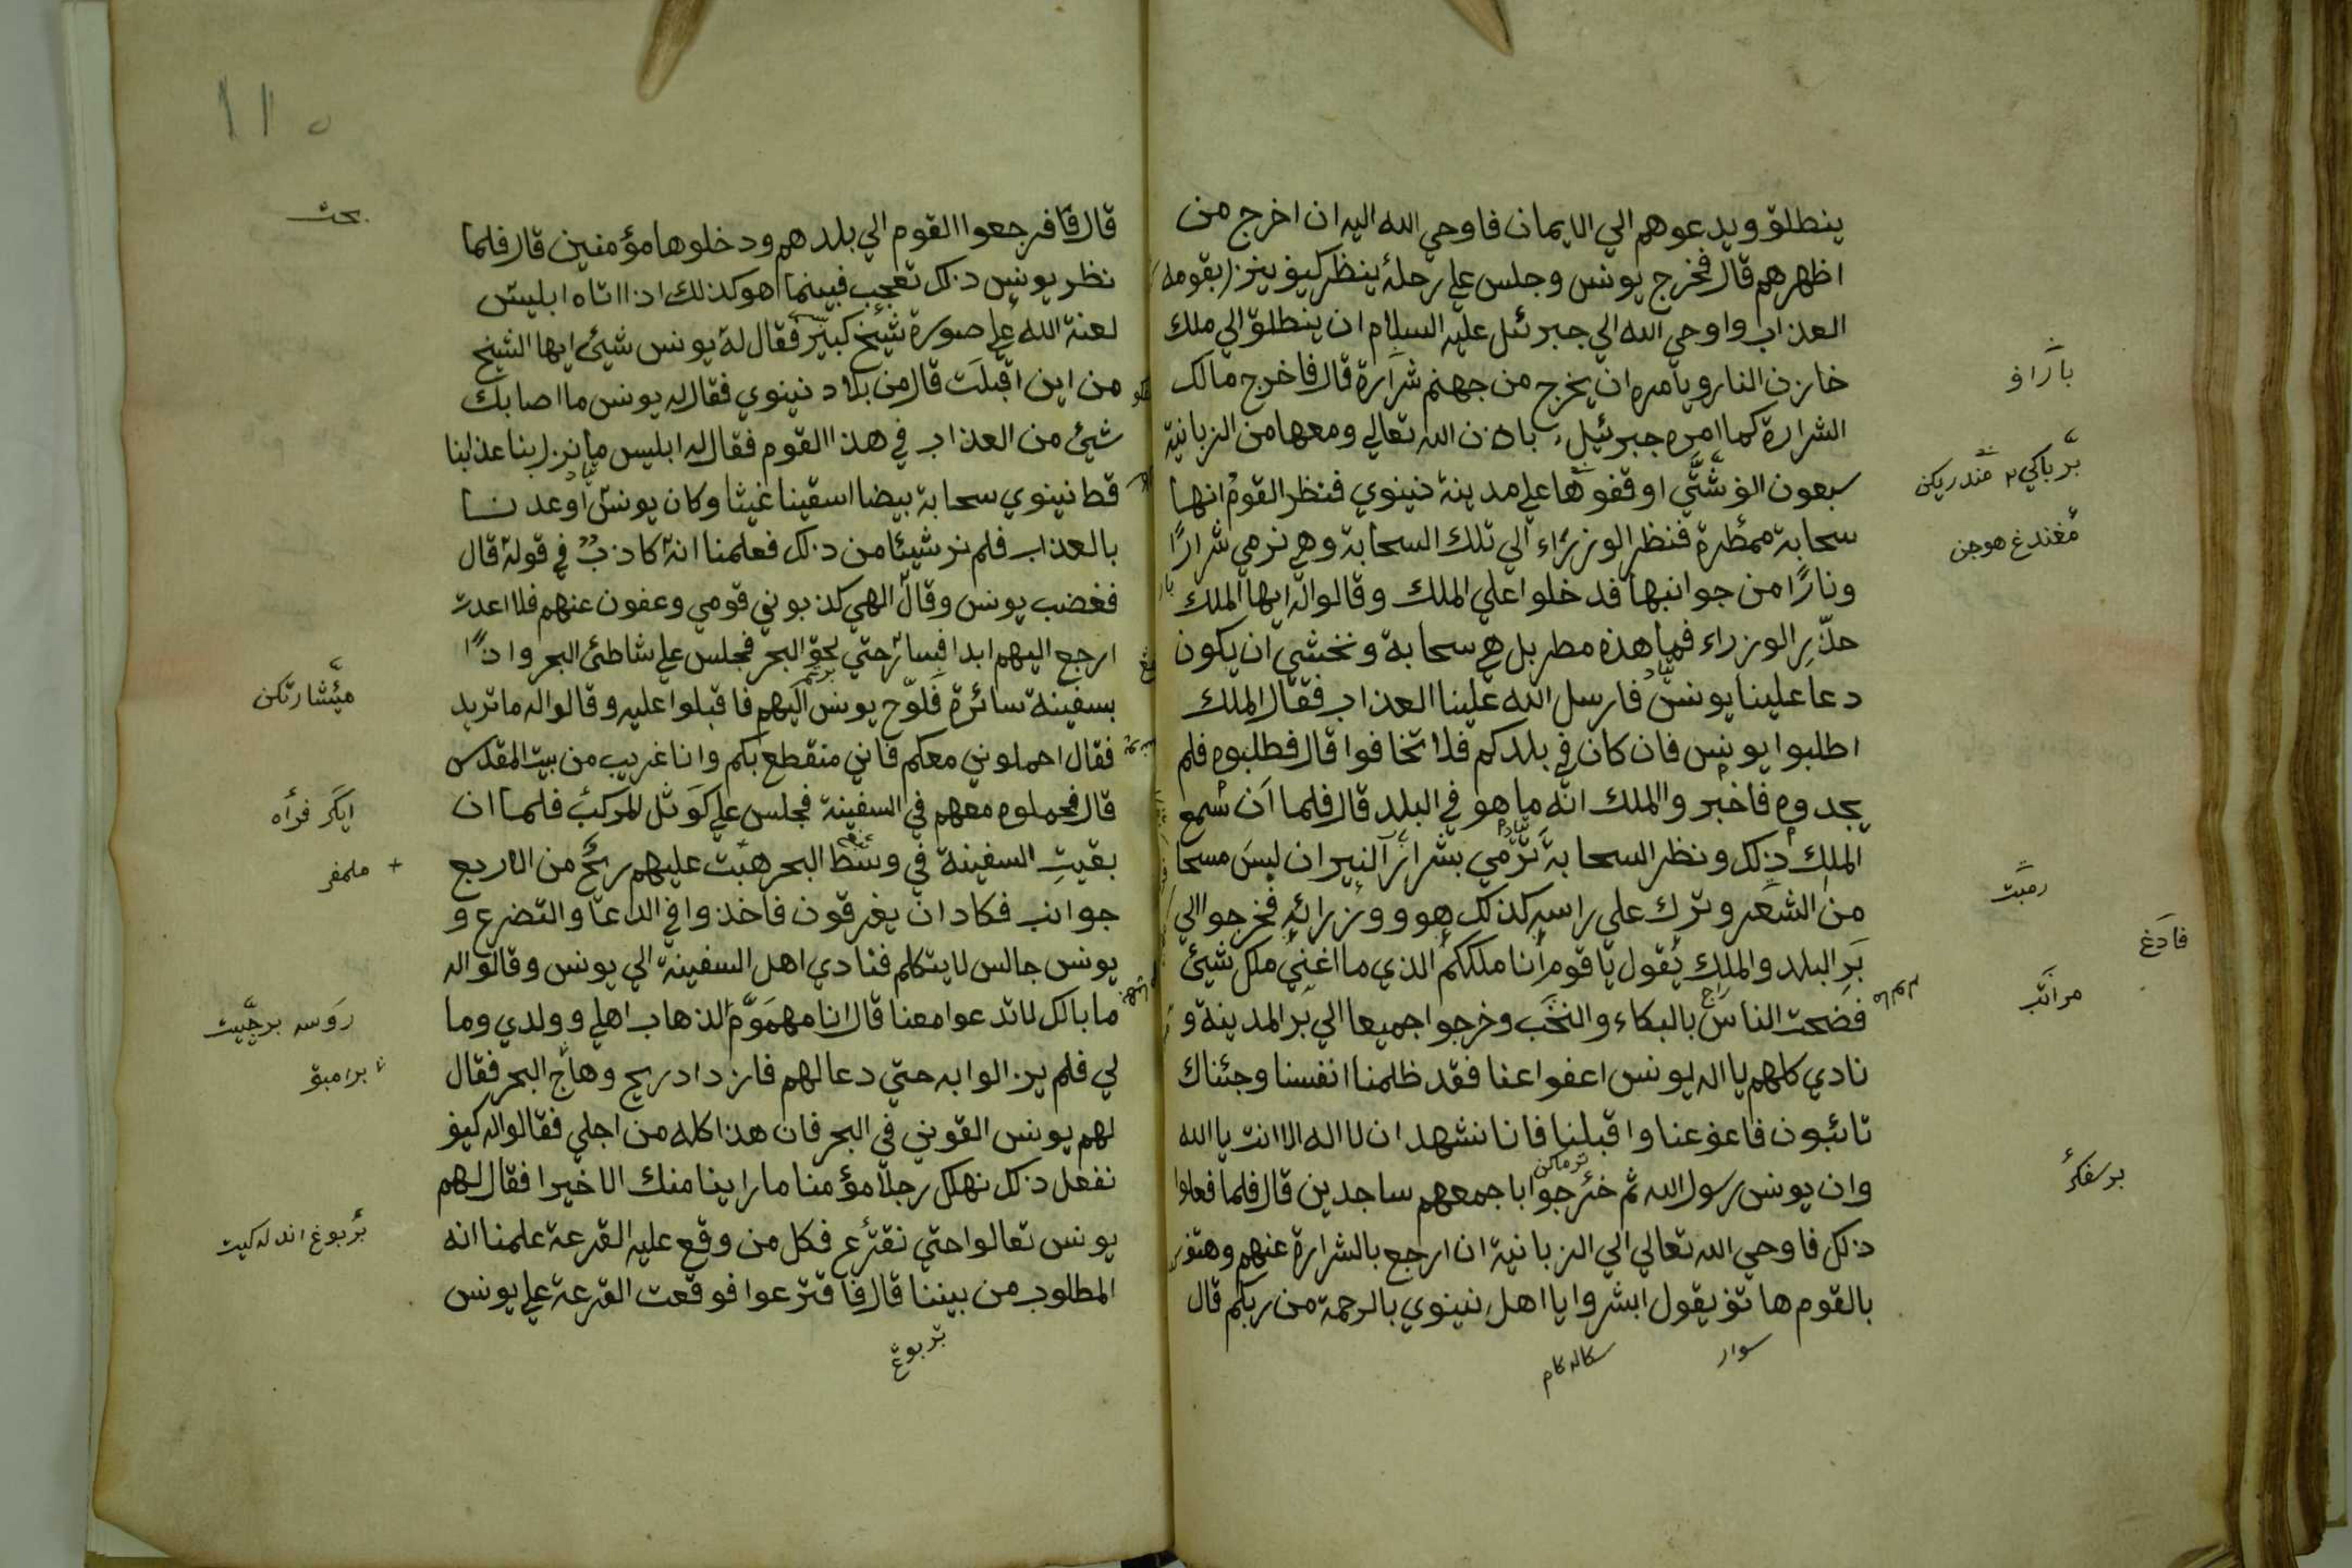 ينطلق ويدعوهم الي الايمان فاوحي الله اليه ان اخرج من
اظهرهم قال فخرج يونس وجلس علي رحلة ينظر كيف ينزل بقومه
العذاب واوحي الله الي جبرئل عليه السلام ان ينطلق الي ملك
خازن النار ويامره ان يخرج من جهنم شرارة قال فاخرج مالك
الشرارة كما امره جبرئيل باذن الله تعالي ومعها من الزبانية
سبعون الف شتّي اوقفوها علي مدينة نينوي فنظر القوم انها
سحابة ممطرة فنظر الوزراء الي تلك السحابة وهي نرمي شرارًا
ونارًا من جوانبها فدخلوا علي الملك وقالوا له ايها الملك
حذّر الوزراء فما هذه مطر بل هي سحابة ونخشي ان يكون
دعا علينا يونس فارسل الله علينا العذاب فقال الملك
اطلبوا يونس فان كان في بلدكم فلا تخافوا قال فطلبوه فلم
يجدوه فاخبر والملك انه ما هو في البلد قال فلما ان سمع
الملك ذلك ونظر السحابة ترمي بشرار النيران لبس مسحا
من الشعر وترك علي راسه كذلك هو ووزرائه فخرجوا الي
بر البلد والملك يقول يا قوم انا ملككم الذي ما اغني ملك شيئ
فضحت الناس بالبكاء والنخب وخرجوا جميعا الي بر المدينة و
نادي كلهم يا اله يونس اعفوا عنا فقد ظلمنا انفسنا وجئناك
تائبون فاعف عنا واقبلنا فانا نشهد ان لا اله الا انت يا الله
وان يونس رسول الله ثم خرجوا باجمعهم ساجدين قال فلما فعلوا
ذلك فاوحي الله تعالي الي الزبانية ان ارجع بالشرارة عنهم وهتف
بالقوم هاتف يقول ابشروا يا اهل نينوي بالرحمة من ربكم قال
سوار
باراف
مغندغ هوجن
رمبت
فادغ
قال فرجعوا القوم الي بلدهم ودخلوها مؤمنين قال فلما
نظر يونس ذلك تعجب فبينما هو كذلك اذا اتاه ابليس
لعنة الله علي صورة شيخ كبير فقال له يونس شيئ ايها الشيخ
من اين اقبلت قال من بلاد نينوي فقال له يونس ما اصابك
شيئ من العذاب في هذا القوم فقال له ابليس ما نزل بنا عذابنا
قط نينوي سحابة بيضا اسقينا غيثا وكان يونس اوعدنا
بالعذاب فلم نر شيئا من ذلك فعلمنا انه كاذب في قوله قال
فغضب يونس وقال الهي كذبوني قومي وعفون عنهم فلا اعدت
ارجع اليهم ابدا فسار حتي لحق البحر فجلس علي شاطئ البحر واذًا
بسفينة سائرة فلوّح يونس اليهم فاقبلوا عليه وقالوا له ما تريد
فقال احملوني معكم فاني منقطع بكم وانا غريب من بيت المقدس
قال فحملوه معهم في السفينة فجلس علي كوثل المركب فلما ان
بقيت السفينة في وسط البحر هبت عليهم ريح من الاربع
جوانب فكاد ان يغرقون فاخذوا في الدعا والتضرع و
يونس جالس لا يتكلم فنادي اهل السفينة الي يونس وقالوا له
ما بالك لا تدعوا معنا قال انا مهموم لذهاب اهلي وولدي وما
لي فلم يزالوا به حتي دعا لهم فازداد ريح وهاج البحر فقال
لهم يونس القوني في البحر فان هذا كله من اجلي فقالوا له كيف
نفعل ذلك نهلك رجلا مؤمنا ما راينا منك الا خيرا فقال لهم
يونس تعالوا حتي نقترع فكل من وقع عليه القرعة علمنا انه
المطلوب من بيننا قال فاقترعوا فوقعت القرعة علي يونس
بحث
ايكر فراه